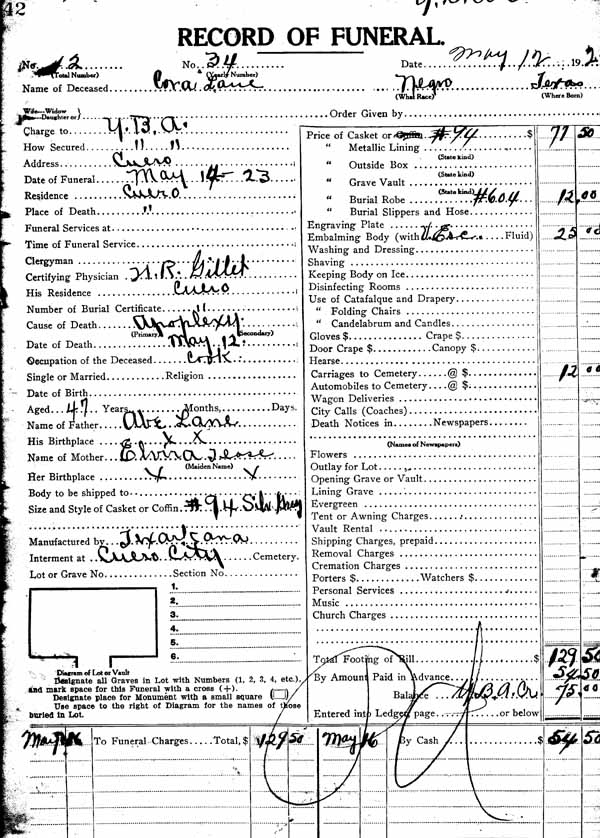 42
RECORD OF FUNERAL.
No. 42 (Total Number) No. 34 (Yearly Number) Date May 12 192
Name of Deceased Cora Lane Negro (What Race) Texas (Where Born)
Wife—Widow
Daughter or} Order Given by
Charge to Y. B. A.
How Secured " "
Address Cuero
Date of Funeral May 14 - 23
Residence Cuero
Place of Death "
Funeral Services at
Time of Funeral Service
Clergyman
Certifying Physician H. R. Gillet
His Residence Cuero
Number of Burial Certificate "
Cause of Death Apoplexy
(Primary) (Secondary)
Date of Death May 12
Occupation of the Deceased Cook
Single or Married Religion
Date of Birth
Aged 47 Years Months, Days.
Name of Father Abe Lane
His Birthplace X X
Name of Mother Elvira Jesse
(Maiden Name)
Her Birthplace X X
Body to be shipped to
Size and Style of Casket or Coffin #94 Silv. Grey
Manufactured by Texarkana
Interment at Cuero City Cemetery.
Lot or Grave No. Section No.
1.
2.
3.
4.
5.
6.
Diagram of Lot or Vault
Designate all Graves in Lot with Numbers (1, 2, 3, 4, etc.),
and mark space for this Funeral with a cross (+).
Designate place for Monument with a small square
Use space to the right of Diagram for the names of those
buried in Lot.
Price of Casket or Coffin #94 $ 77 50
" Metallic Lining
(State kind)
" Outside Box
(State kind)
" Grave Vault
(State kind)
" Burial Robe #604 12.00
" Burial Slippers and Hose
Engraving Plate
Embalming Body (with Fluid) 25 00
Washing and Dressing
Shaving
Keeping Body on Ice
Disinfecting Rooms
Use of Catafalque and Drapery
" Folding Chairs
" Candelabrum and Candles
Gloves $ Crape $
Door Crape $ Canopy $
Hearse
Carriages to Cemetery @ $ 12 00
Automobiles to Cemetery @ $
Wagon Deliveries
City Calls (Coaches)
Death Notices in Newspapers
(Names of Newspapers)
Flowers
Outlay for Lot
Opening Grave or Vault
Lining Grave
Evergreen
Tent or Awning Charges
Vault Rental
Shipping Charges, prepaid
Removal Charges
Cremation Charges
Porters $ Watchers $
Personal Services
Music
Church Charges
Total Footing of Bill $ 129 50
By Amount Paid in Advance 54 50
Balance Y. B. A. Cr. 75.00
Entered into Ledger, page or below
May 16 To Funeral Charges Total, $ 129 50 May 16 By Cash $ 54 50